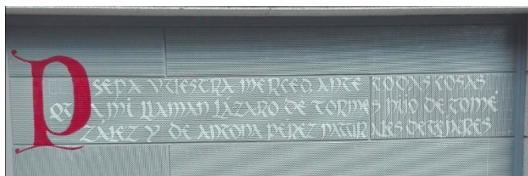 P SEPA VUESTRA MERCED ANTE TODAS COSAS
QUE A MI LLAMAN LÁZARO DE TORMES HIJO DE TOMÉ
ZALEZ Y DE ANTONA PÉREZ NATURALES DE TEJARES